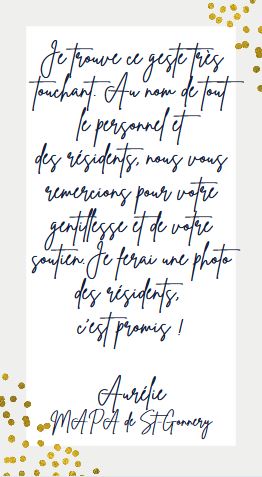 Je trouve ce geste très
touchant. Au nom de tout
le personnel et
des résidents, nous vous
remercions pour votre
gentillesse et de votre
soutien. Je ferai une photo
des résidents,
c'est promis !
Aurélie
MAPA de St-Gonnery